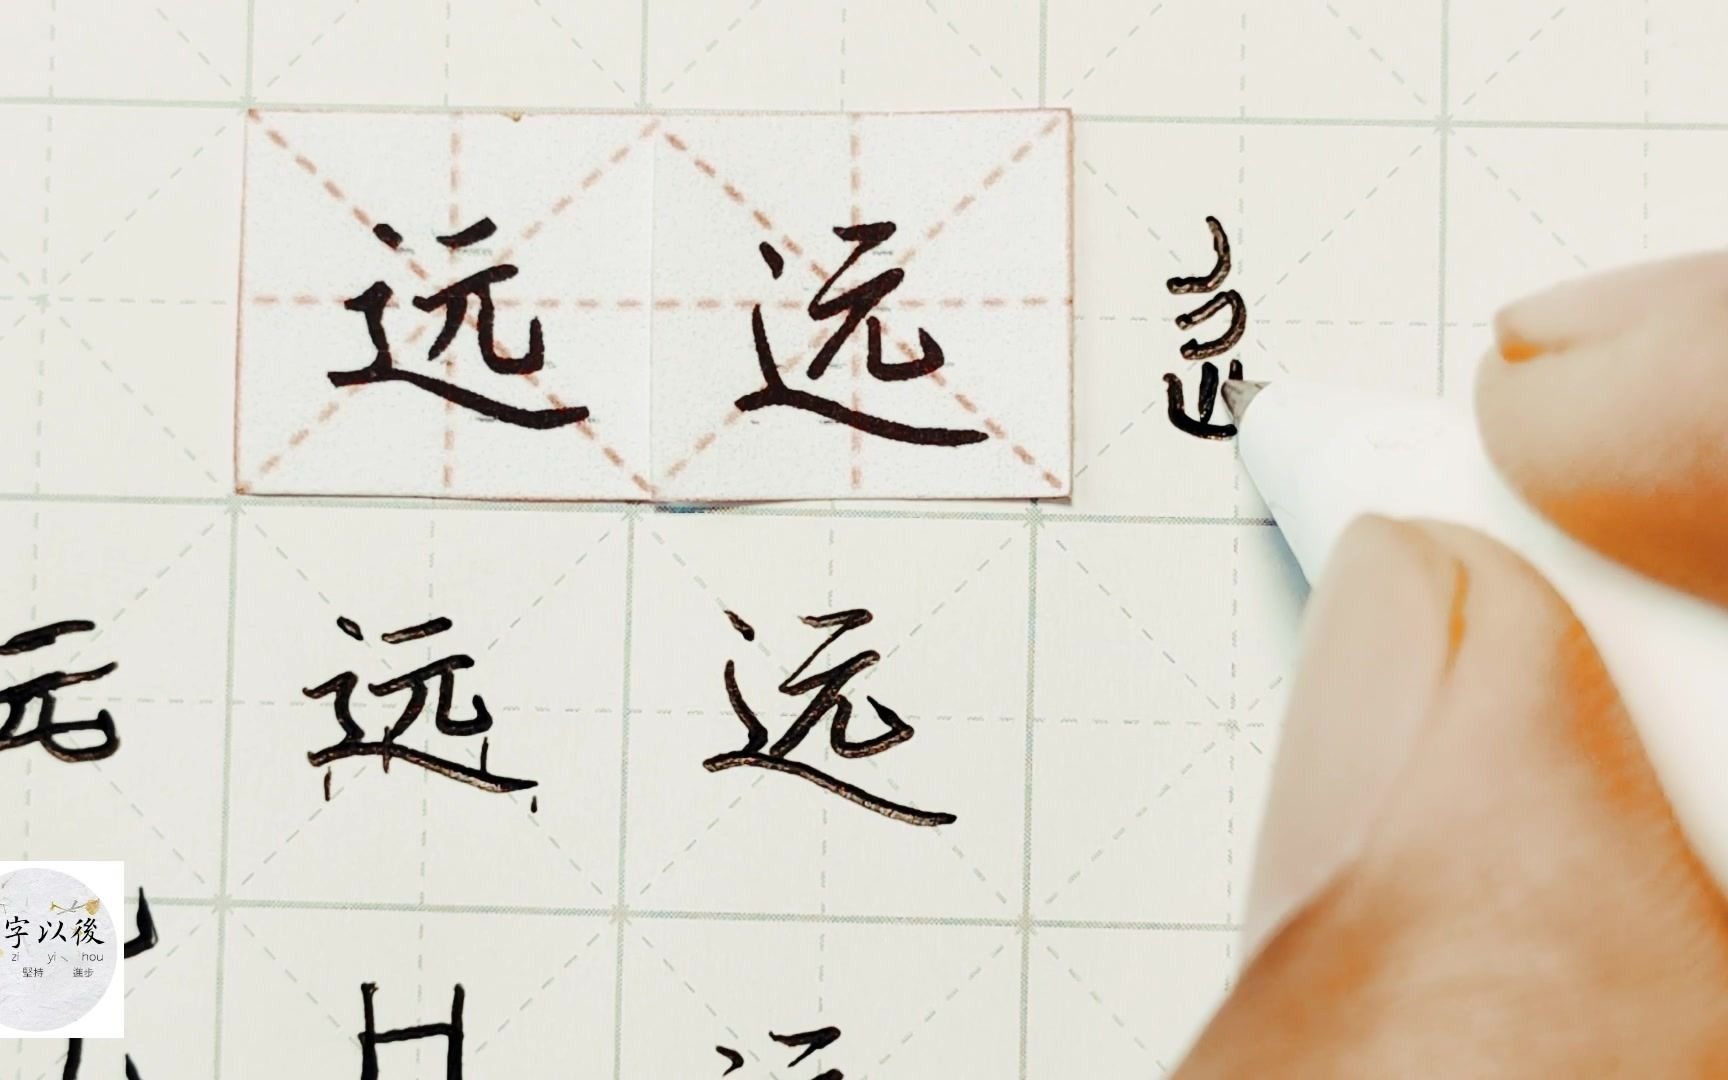 远 远
元 远 远
字以後
zi yi hou
堅持 進步